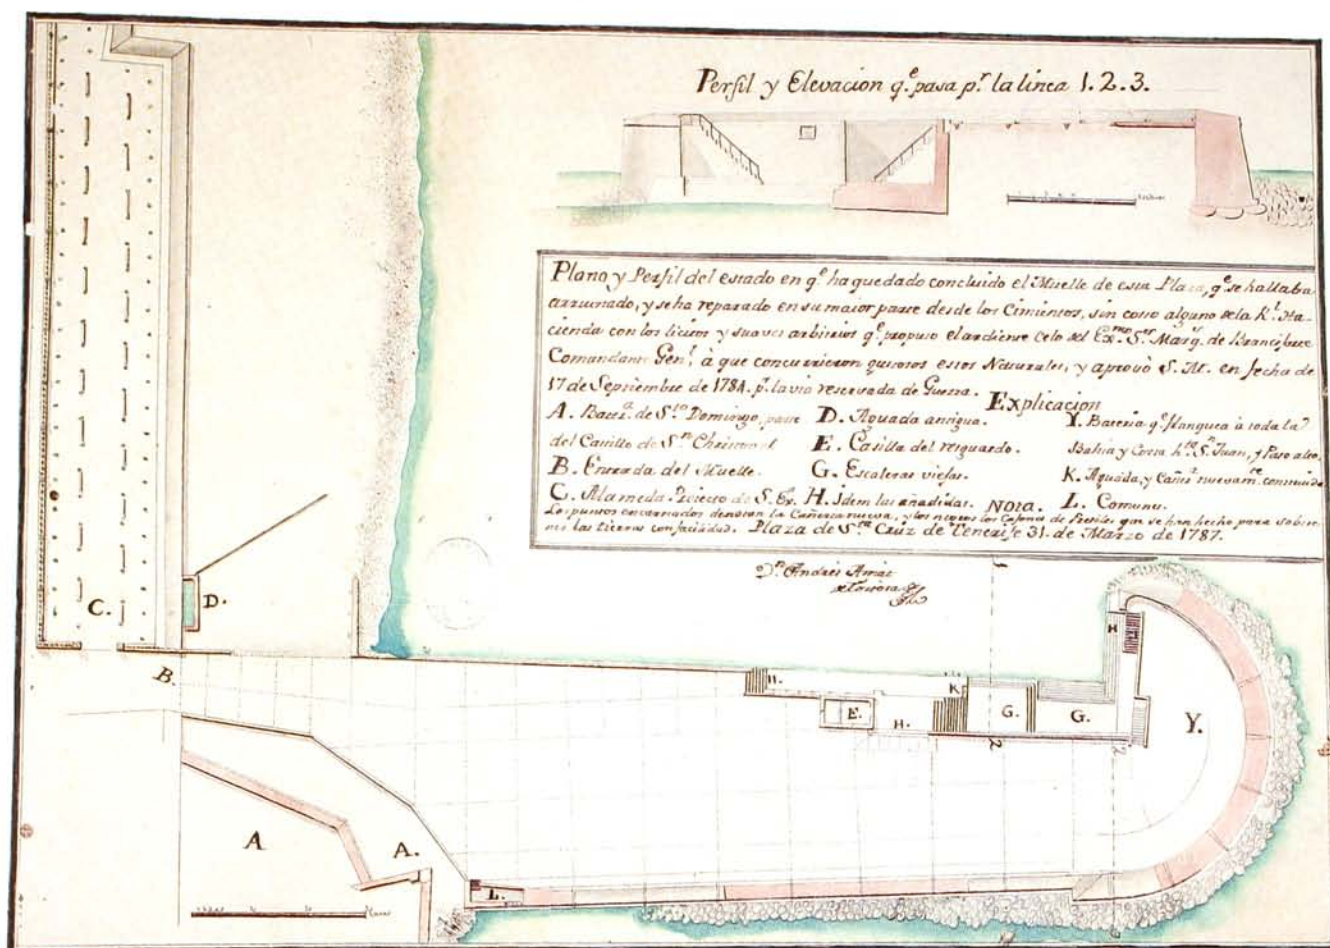 Perfil y Elevacion q.e pasa p.r la linea 1. 2. 3.
Plano y Perfil del estado en q.e ha quedado concluido el Muelle de esta Plaza, q.e se hallaba
arruinado, y se ha reparado en su maior parte desde los Cimientos, sin costo alguno de la R.l Ha-
cienda con los licitos y suaves arbitrios q.e propuso el ardiente Celo del Ex.mo S.or Marq.s de Branciforte
Comandante Gen.l à que concurrieron gustosos estos Naturales, y aprovò S. M. en fecha de
17 de Septiembre de 1784. p.r la via reservada de Guerra.
Explicacion
A. Bater.a de S.to Domingo, parte
del Castillo de S.n Christoval
B. Entrada del Muelle.
C. Alameda Proiecto de S. Ex.
D. Aguada antigua.
E. Casilla del resguardo.
G. Escaleras viejas.
H. Idem las añadidas.
Y. Bateria q.e flanquea à toda la
Bahia y Costa h.ta S.n Juan, y Paso alto.
K. Aguada, y Cañer.a nuevam.te construida
L. Comunes.
Nota.
Los puntos encarnados denotan la Cañeria nueva, y los negros los Cajones de que se han hecho para
las tierras con facilidad. Plaza de S.ta Cruz de Tenerife 31. de Marzo de 1787.
D.n Andres Amat
de Tortosa
C.
D.
B.
H.
K.
E.
H.
G.
G.
H
Y.
2
2
A
A.
L.